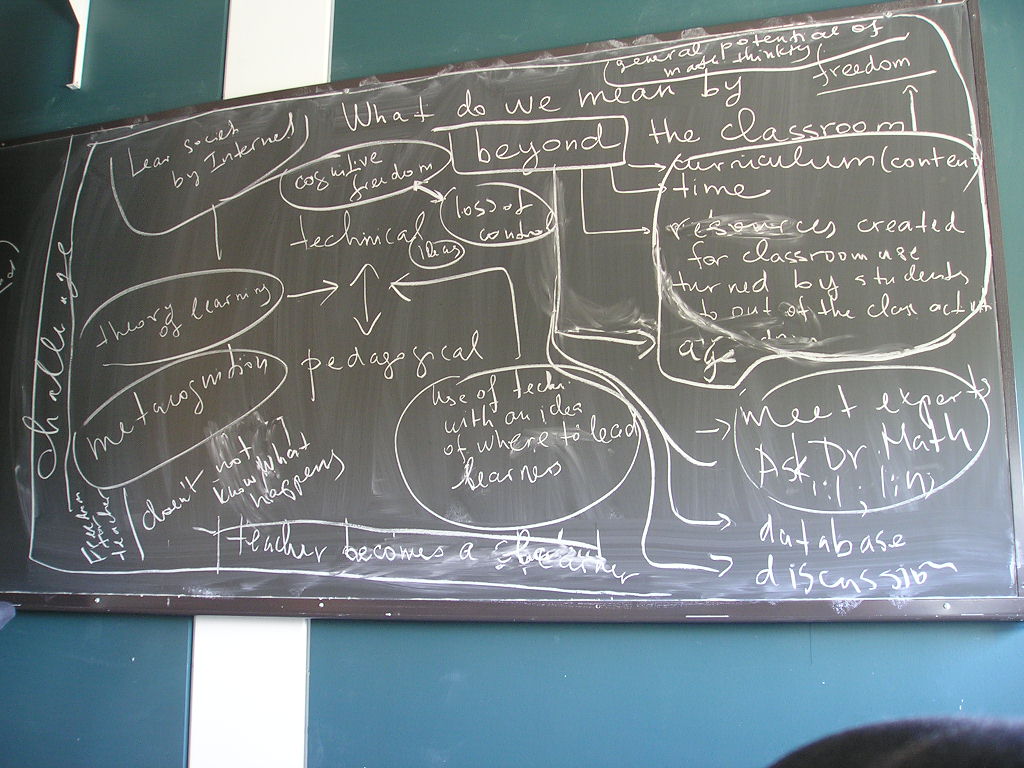 general potential of
math thinking
freedom
What do we mean by
beyond
the classroom
Lear societ
by Internet
cognitive
freedom
loss of
control
technical
ideas
curriculum (content
time
resources created
for classroom use
turned by students
to out of the class activ
age
theory
of learning
pedagogical
metacognition
challenge
Use of techn.
with an idea
of where to lead
learners
meet experts
Ask Dr. Math
doesn't not
know what
happens
Freedom
teacher
teacher becomes a learner
database
discussion